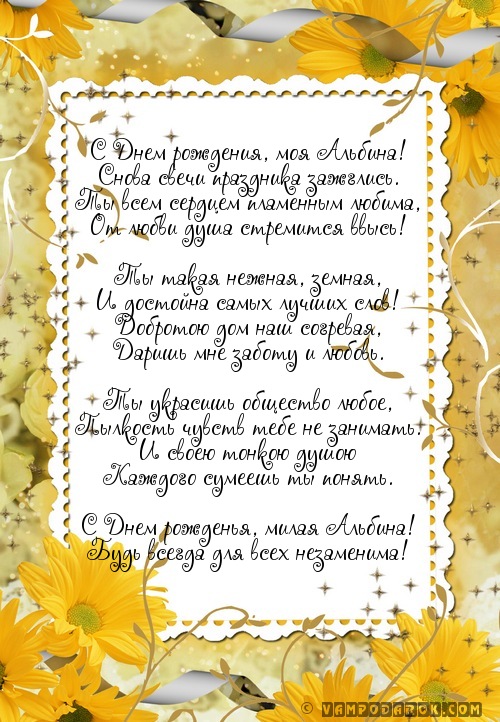 С Днем рождения, моя Альбина!
Снова свечи праздника зажглись.
Ты всем сердцем пламенным любима,
От любви душа стремится ввысь!
Ты такая нежная, земная,
И достойна самых лучших слов!
Добротою дом наш согревая,
Даришь мне заботу и любовь.
Ты украсишь общество любое,
Пылкость чувств тебе не занимать.
И своею тонкою душою
Каждого сумеешь ты понять.
С Днем рожденья, милая Альбина!
Будь всегда для всех незаменима!
© VAMPODAROK.COM